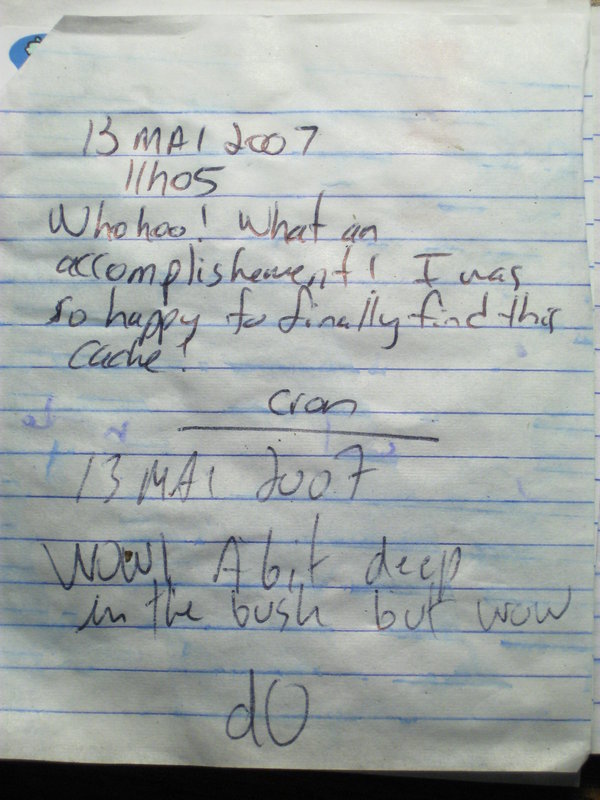 13 MAI 2007
11h05
Whohoo! What an
accomplishement! I was
so happy to finally find this
cache!
cron
13 MAI 2007
WOW! A bit deep
in the bush but wow
dO